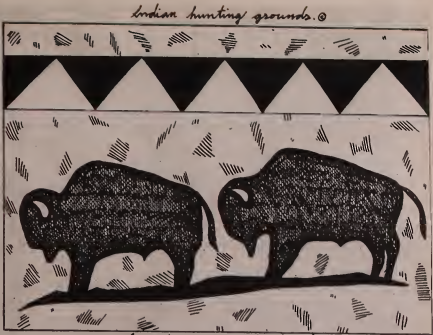 Indian hunting grounds. ©